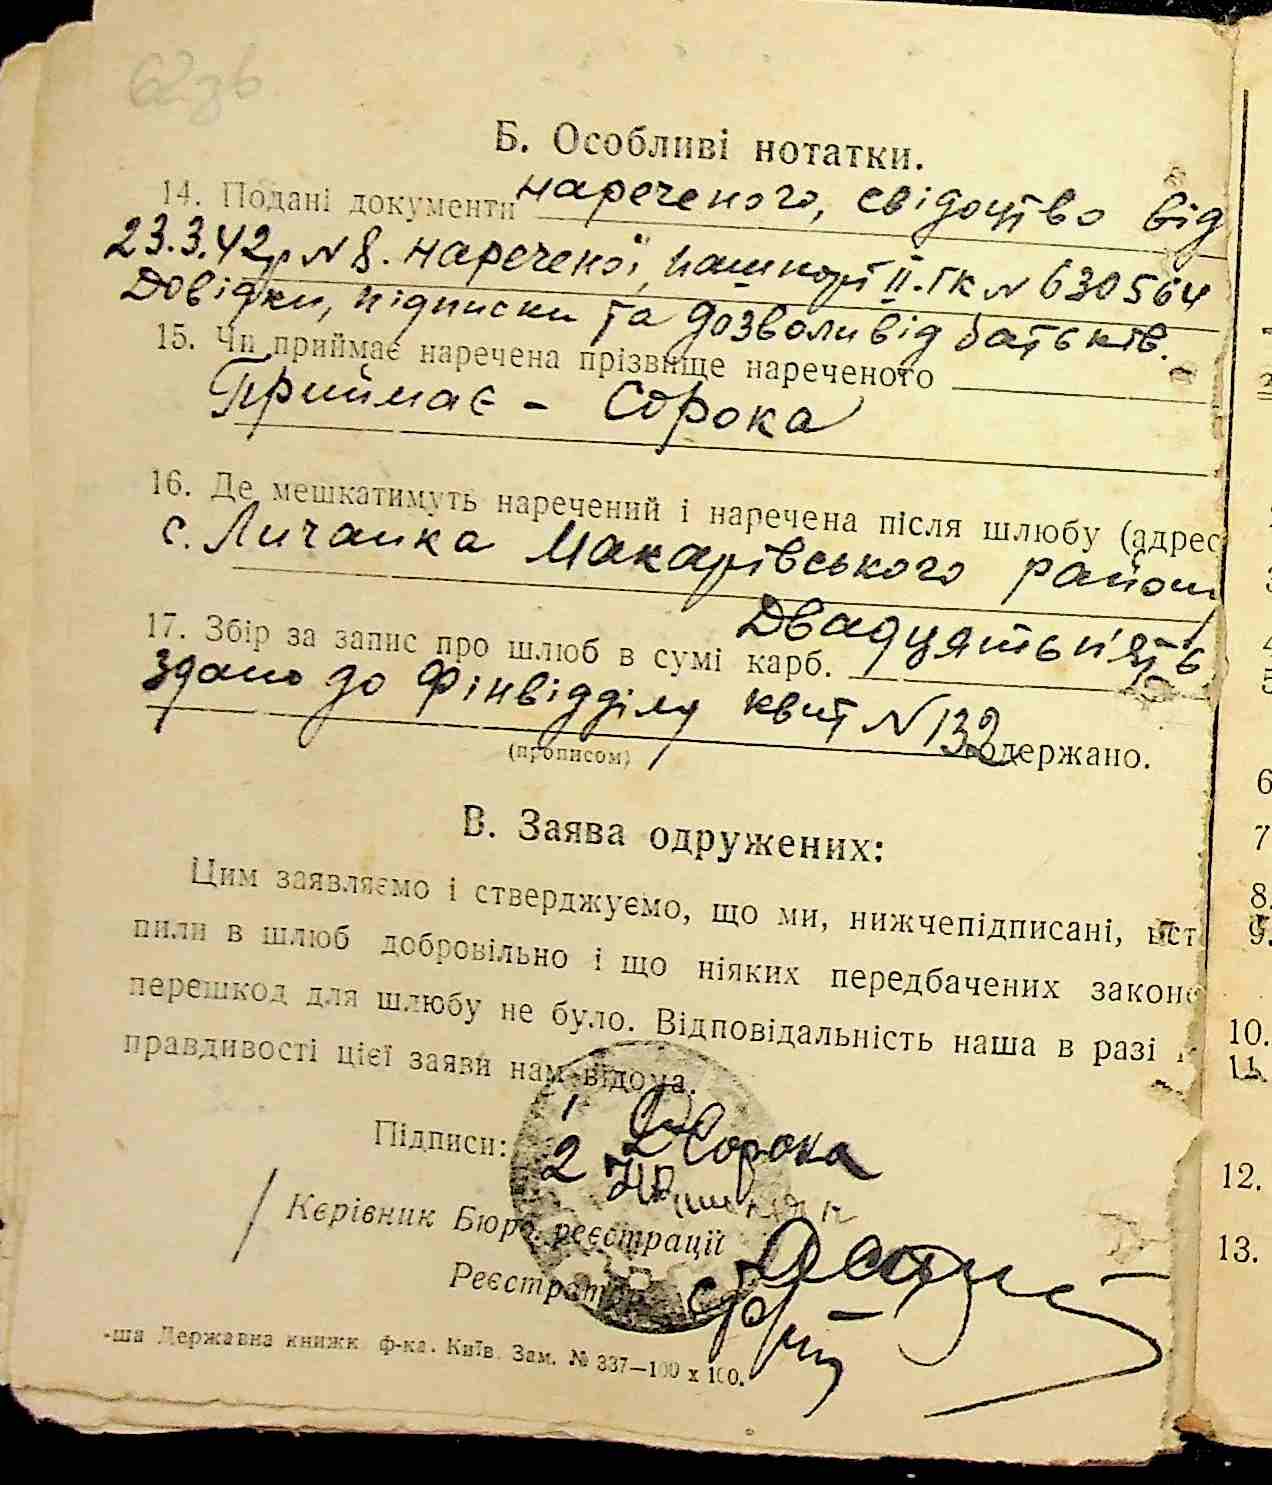 62зв
Б. Особливі нотатки.
14. Подані документи нареченого, свідоцтво від
23.3.42р N 8. нареченої, пашпорт II-ГК N 630564
Довідки, підписки та дозволи від батьків.
15. Чи приймає наречена прізвище нареченого
Приймає - Сорока
16. Де мешкатимуть наречений і наречена після шлюбу (адрес
с. Личанка Макарівського району
17. Збір за запис про шлюб в сумі карб. Двадцять п'ять
здано до Фінвідділу квит N 132 одержано.
(прописом)
В. Заява одружених:
Цим заявляємо і стверджуємо, що ми, нижчепідписані, вст
пили в шлюб добровільно і що ніяких передбачених законо
перешкод для шлюбу не було. Відповідальність наша в разі
правдивості цієї заяви нам відома.
Підписи: 1 Сорока
2
Керівник Бюро реєстрації
Реєстратор
-ша Державна книжк. ф-ка. Київ. Зам. № 337—100 х 100.
6
7
8.
9.
10.
11.
12.
13.